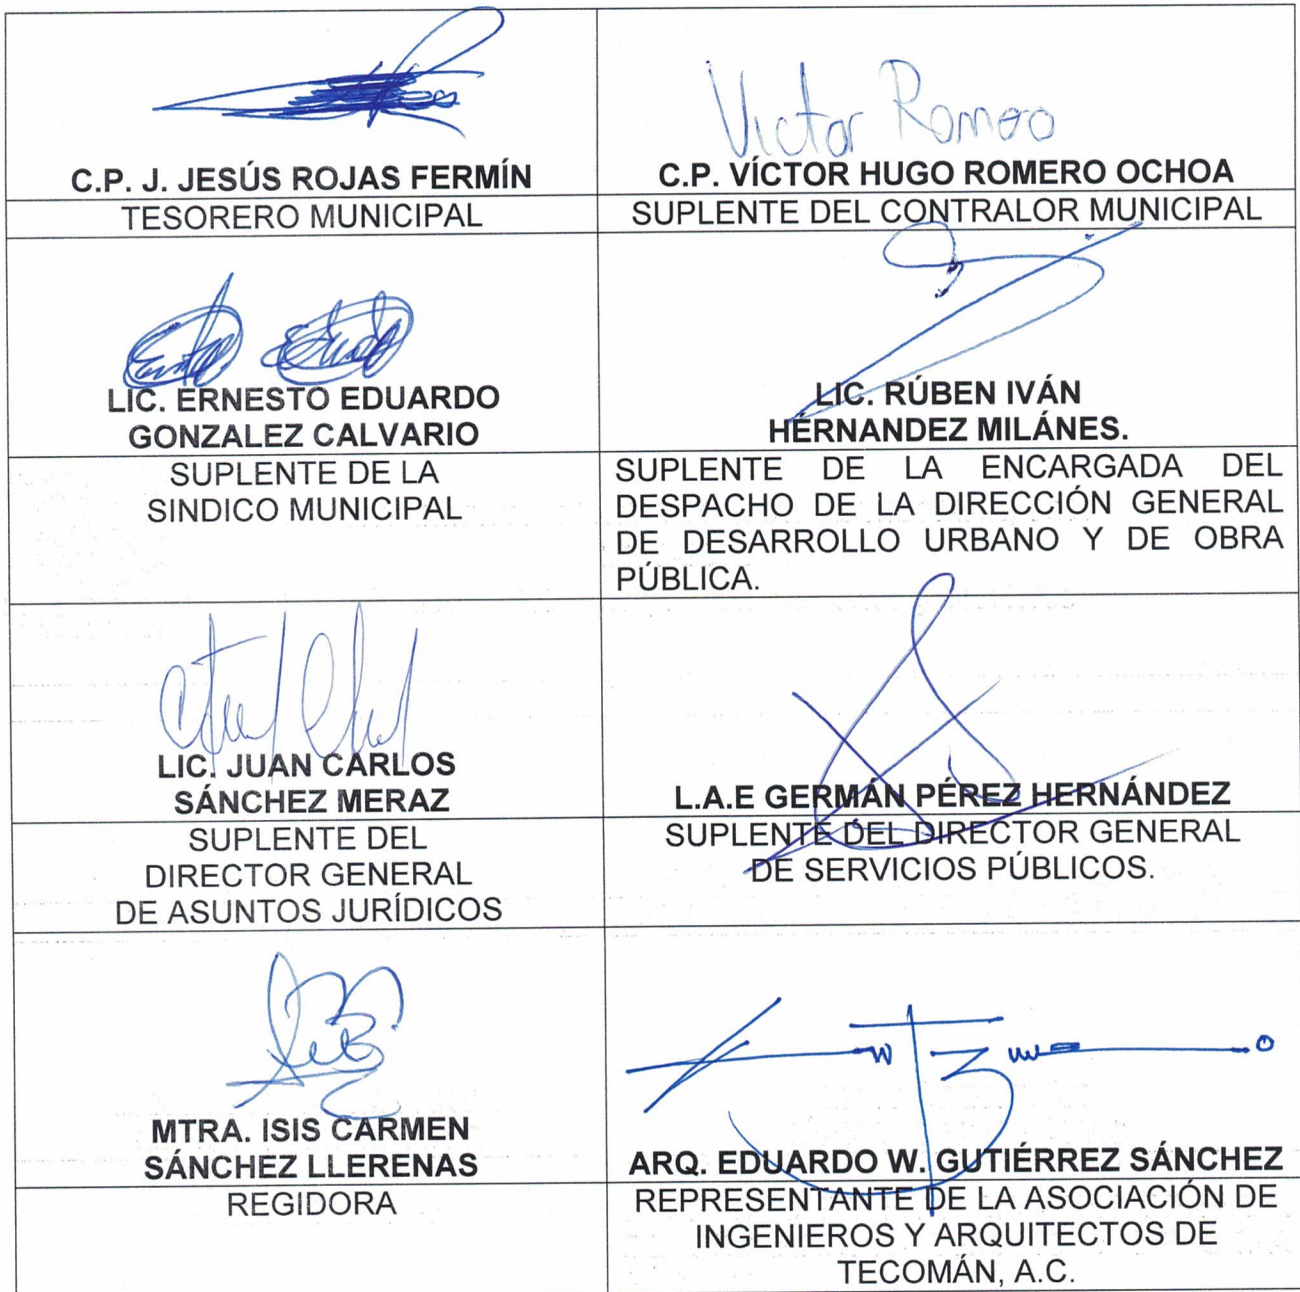 Victor Romero
C.P. J. JESÚS ROJAS FERMÍN
C.P. VÍCTOR HUGO ROMERO OCHOA
TESORERO MUNICIPAL
SUPLENTE DEL CONTRALOR MUNICIPAL
LIC. ERNESTO EDUARDO
GONZALEZ CALVARIO
LIC. RÚBEN IVÁN
HERNANDEZ MILÁNES.
SUPLENTE DE LA
SINDICO MUNICIPAL
SUPLENTE DE LA ENCARGADA DEL
DESPACHO DE LA DIRECCIÓN GENERAL
DE DESARROLLO URBANO Y DE OBRA
PÚBLICA.
LIC. JUAN CARLOS
SÁNCHEZ MERAZ
L.A.E GERMÁN PÉREZ HERNÁNDEZ
SUPLENTE DEL
DIRECTOR GENERAL
DE ASUNTOS JURÍDICOS
SUPLENTE DEL DIRECTOR GENERAL
DE SERVICIOS PÚBLICOS.
MTRA. ISIS CARMEN
SÁNCHEZ LLERENAS
ARQ. EDUARDO W. GUTIÉRREZ SÁNCHEZ
REGIDORA
REPRESENTANTE DE LA ASOCIACIÓN DE
INGENIEROS Y ARQUITECTOS DE
TECOMÁN, A.C.